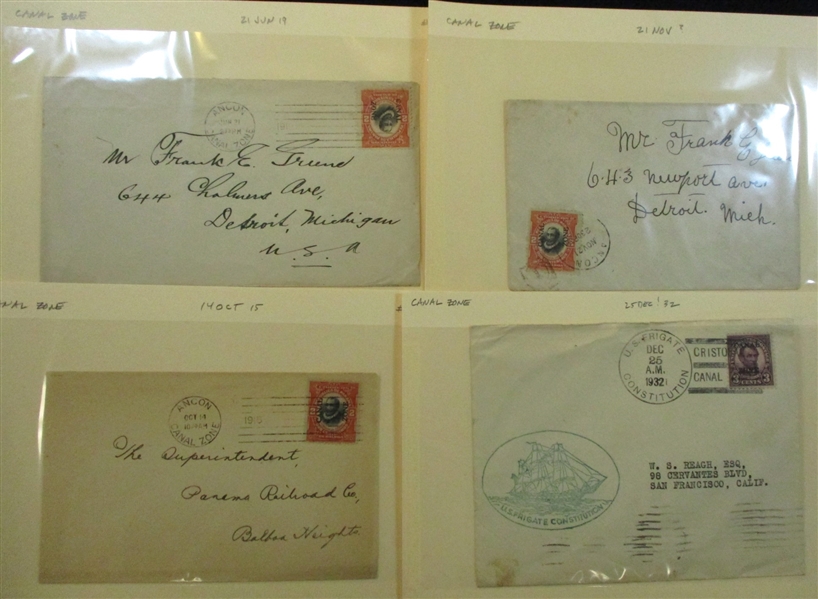 CANAL ZONE
21 JUN 19
ANCON
CANAL ZONE
Mr Frank E. Freund
644 Chalmers Ave,
Detroit, Michigan
U.S.A
CANAL ZONE
21 NOV ?
Mr. Frank E
643 Newport ave.
Detroit. Mich.
ANCON
CANAL ZONE
14 OCT 15
ANCON
OCT 14
CANAL ZONE
The Superintendent,
Panama Railroad Co,
Balboa Heights.
CANAL ZONE
25 DEC '32
U.S. FRIGATE
DEC
25
A.M.
1932
CONSTITUTION
CRISTO
CANAL
U.S. FRIGATE CONSTITUTION
W. S. REAGH, ESQ,
98 CERVANTES BLVD,
SAN FRANCISCO, CALIF.